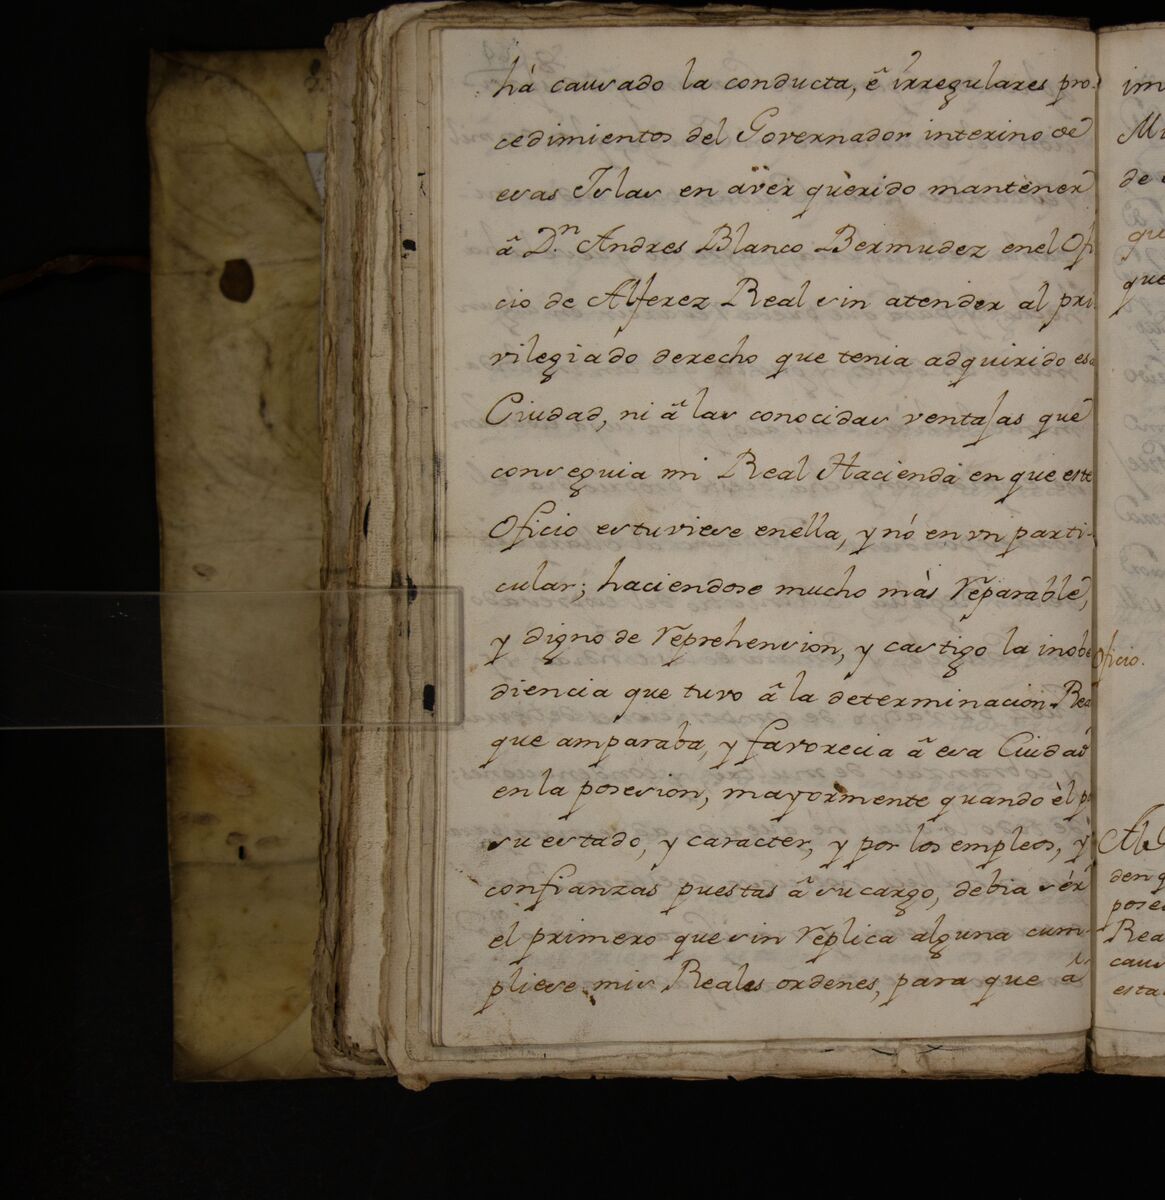 há causado la conducta, ẽ irregulares pro-
cedimientos del Governador interino de
esas Islas en aver querido mantener
ã D.ⁿ Andres Blanco Bermudez enel Ofi
cio de Alferez Real sin atender al pri-
vilegiado derecho que tenia adquirido esa
Ciudad, ni ã las conocidas ventajas que
conseguia mi Real Hacienda en que este
Oficio estuviese enella, y nó en vn parti-
cular; haciendose mucho más reparable,
y digno de reprehension, y castigo la inobe
diencia que tuvo ã la determinacion Rea
que amparaba, y favorecia ã esa Ciudad
enla posesion, mayormente quando èl p
su estado, y caracter, y por los empleos, y
confianzas puestas ã su cargo, debia sér
el primero que sin replica alguna cum-
pliese mis Reales ordenes, para que ã
im
Mi
de
qu
que
Oficio.
den q
pose
Rea
caus
esta